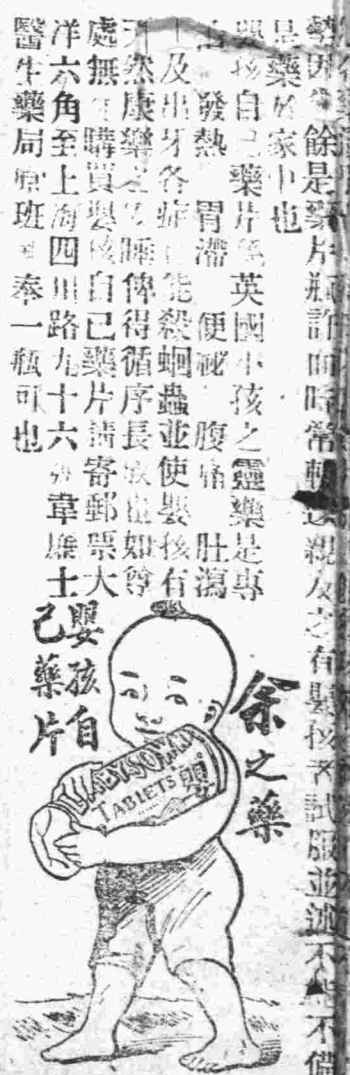 勢因餘是藥片瓶許而時常轉送親友之有嬰孩者試服並述不能不備
是藥於家中也
嬰孩自己藥片係英國小孩之靈藥是專
治 發熱 胃滯 便祕 腹痛 肚瀉
及出牙各症 能殺蛔蟲並使嬰孩有
天然康樂之 睡俾得循序長 也如尊
處無 購買嬰孩自己藥片請寄郵票大
洋六角至上海四川路九十六號韋廉士
醫生藥局原班 奉一瓶可也
余之藥
嬰孩自
己藥片
BABY'S OWN
TABLETS